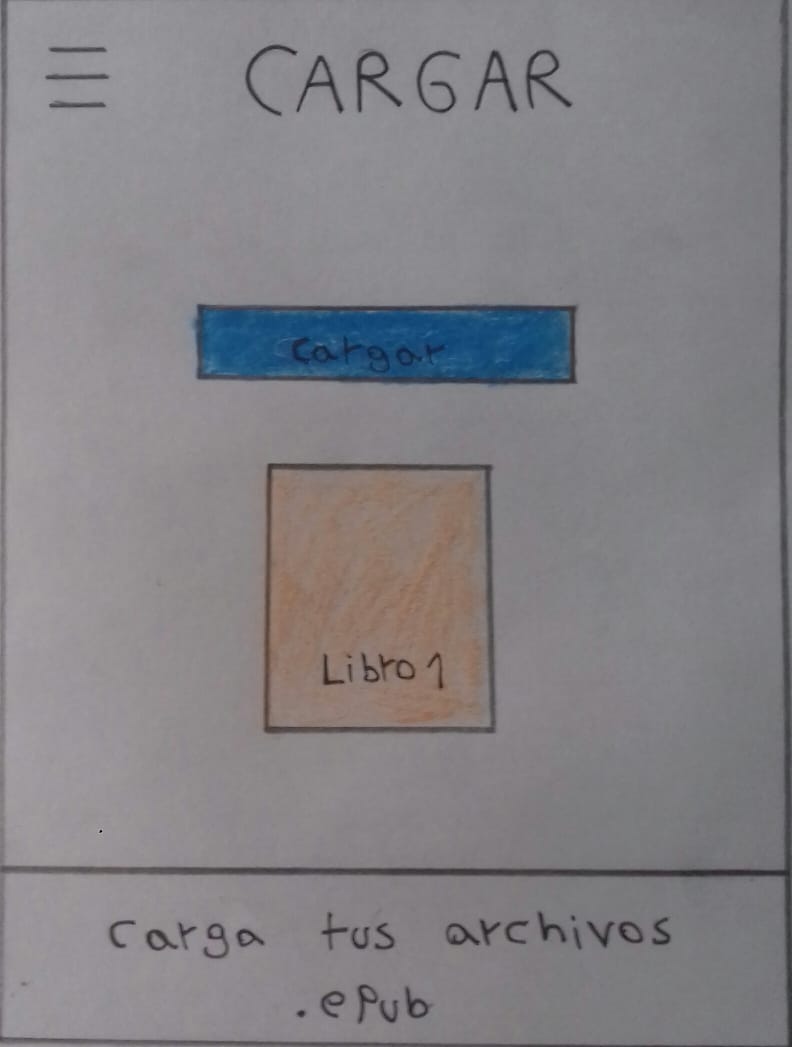 CARGAR
Cargar
Libro 1
Carga tus archivos
.ePub